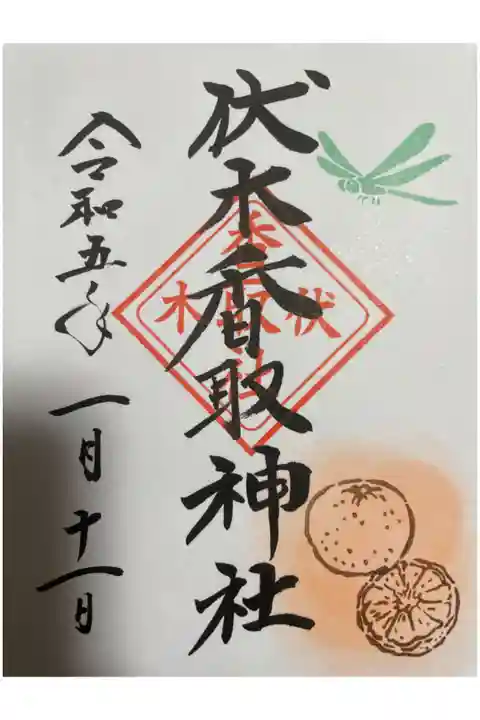 伏木香取神社
伏木
香取
社
令和五年
一月十一日